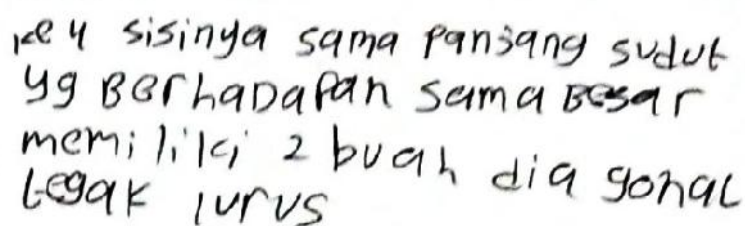 ke 4 sisinya sama Panjang sudut
yg BerhaDaPan sama Besar
memiliki 2 buah diagonal
tegak lurus